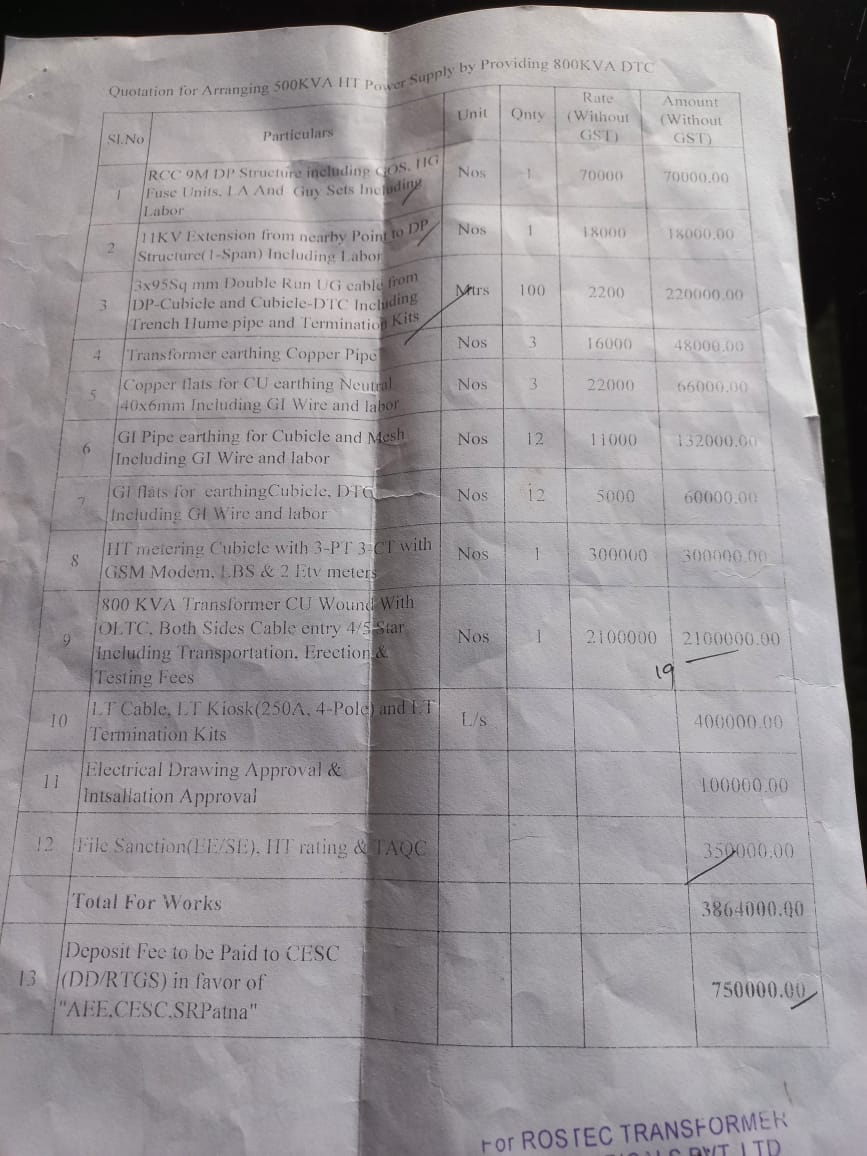 Quotation for Arranging 500KVA HT Power Supply by Providing 800KVA DTC
Sl.No Particulars Unit Qnty Rate (Without GST) Amount (Without GST)
1 RCC 9M DP Structure including GOS, HG Nos 1 70000 70000.00
Fuse Units, LA And Guy Sets Including
Labor
2 11KV Extension from nearby Point to DP Nos 1 18000 18000.00
Structure(1-Span) Including Labor
3x95Sq mm Double Run UG cable from
3 DP-Cubicle and Cubicle-DTC Including Mtrs 100 2200 220000.00
Trench Hume pipe and Termination Kits
4 Transformer earthing Copper Pipe Nos 3 16000 48000.00
5 Copper flats for CU earthing Neutral Nos 3 22000 66000.00
40x6mm Including GI Wire and labor
6 GI Pipe earthing for Cubicle and Mesh Nos 12 11000 132000.00
Including GI Wire and labor
7 GI flats for earthingCubicle, DTC Nos 12 5000 60000.00
Including GI Wire and labor
8 HT metering Cubicle with 3-PT 3-CT with Nos 1 300000 300000.00
GSM Modem, LBS & 2 Etv meters
800 KVA Transformer CU Wound With
9 OLTC, Both Sides Cable entry 4/5 Star Nos 1 2100000 2100000.00
Including Transportation, Erection &
Testing Fees
19
10 LT Cable, LT Kiosk(250A, 4-Pole) and LT L/s 400000.00
Termination Kits
11 Electrical Drawing Approval & 100000.00
Intsallation Approval
12 File Sanction(EE/SE), HT rating & TAQC 350000.00
Total For Works 3864000.00
Deposit Fee to be Paid to CESC
13 (DD/RTGS) in favor of 750000.00
"AEE,CESC,SRPatna"
For ROSTEC TRANSFORMER
PVT LTD